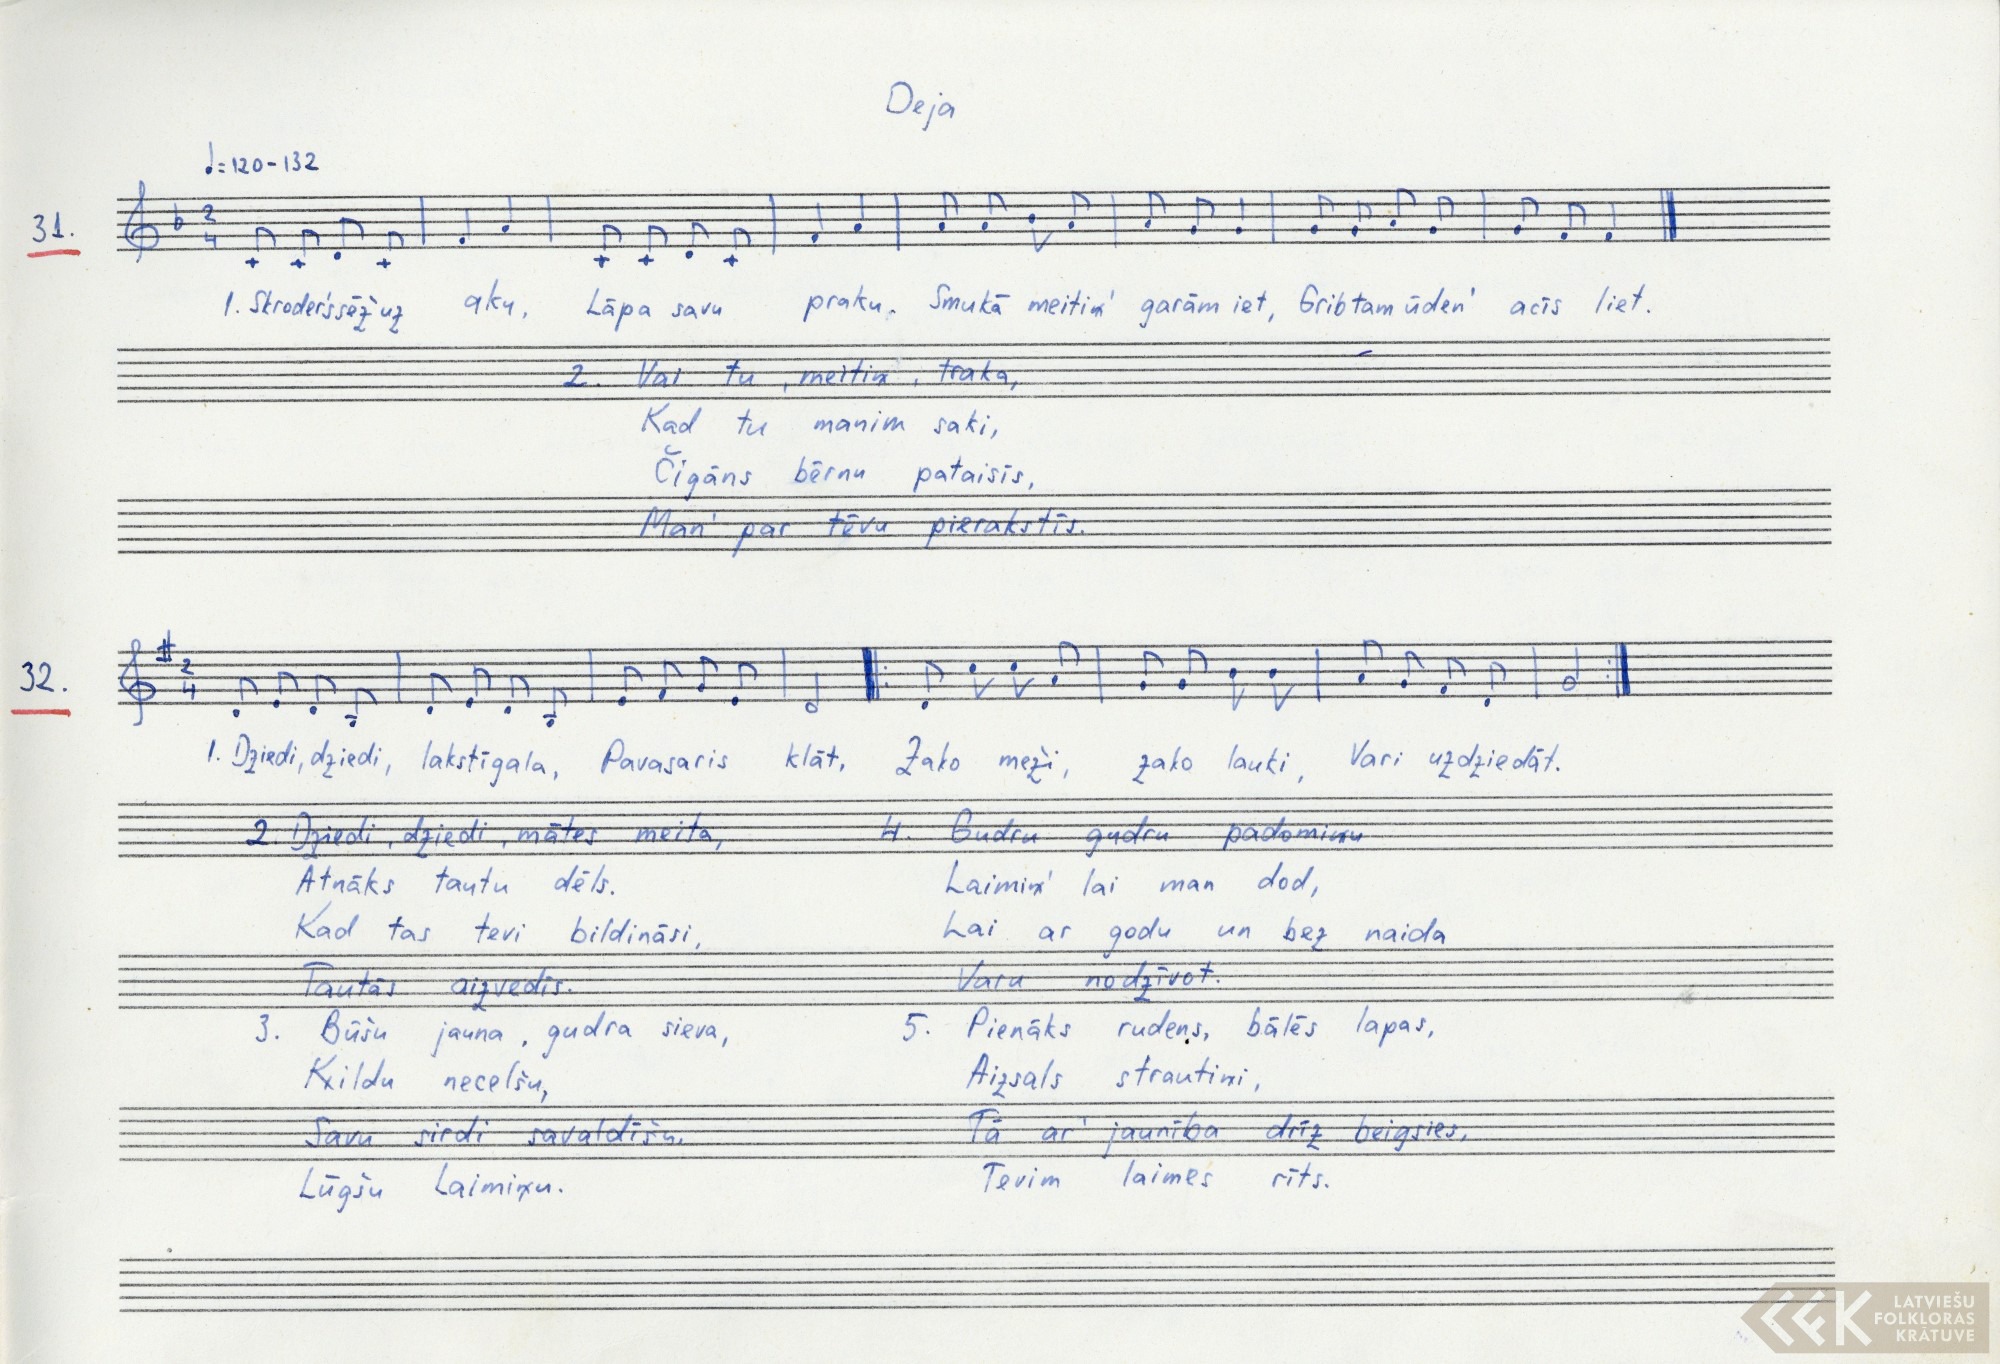 Deja
♩=120-132
31.
2
4
1. Skroder's sēž uz aku, Lāpa savu praku. Smukā meitiņ' garām iet, Grib tam ūden' acīs liet.
2. Vai tu, meitiņ, traka,
Kad tu manim saki,
Čigāns bērnu pataisīs,
Man' par tēvu pierakstīs.
32.
2
4
1. Dziedi, dziedi, lakstīgala, Pavasaris klāt, Zaļo meži, zaļo lauki, Vari uzdziedāt.
2. Dziedi, dziedi, mātes meita,
Atnāks tautu dēls.
Kad tas tevi bildināsi,
Tautās aizvedīs.
3. Būšu jauna, gudra sieva,
Ķildu necelšu,
Savu sirdi savaldīšu,
Lūgšu Laimiņu.
4. Gudru gudru padomiņu
Laimiņ' lai man dod,
Lai ar godu un bez naida
Varu nodzīvot.
5. Pienāks rudens, bālēs lapas,
Aizsals strautiņi,
Tā ar' jaunība drīz beigsies,
Tevim laimes rīts.
LATVIEŠU
FOLKLORAS
KRĀTUVE